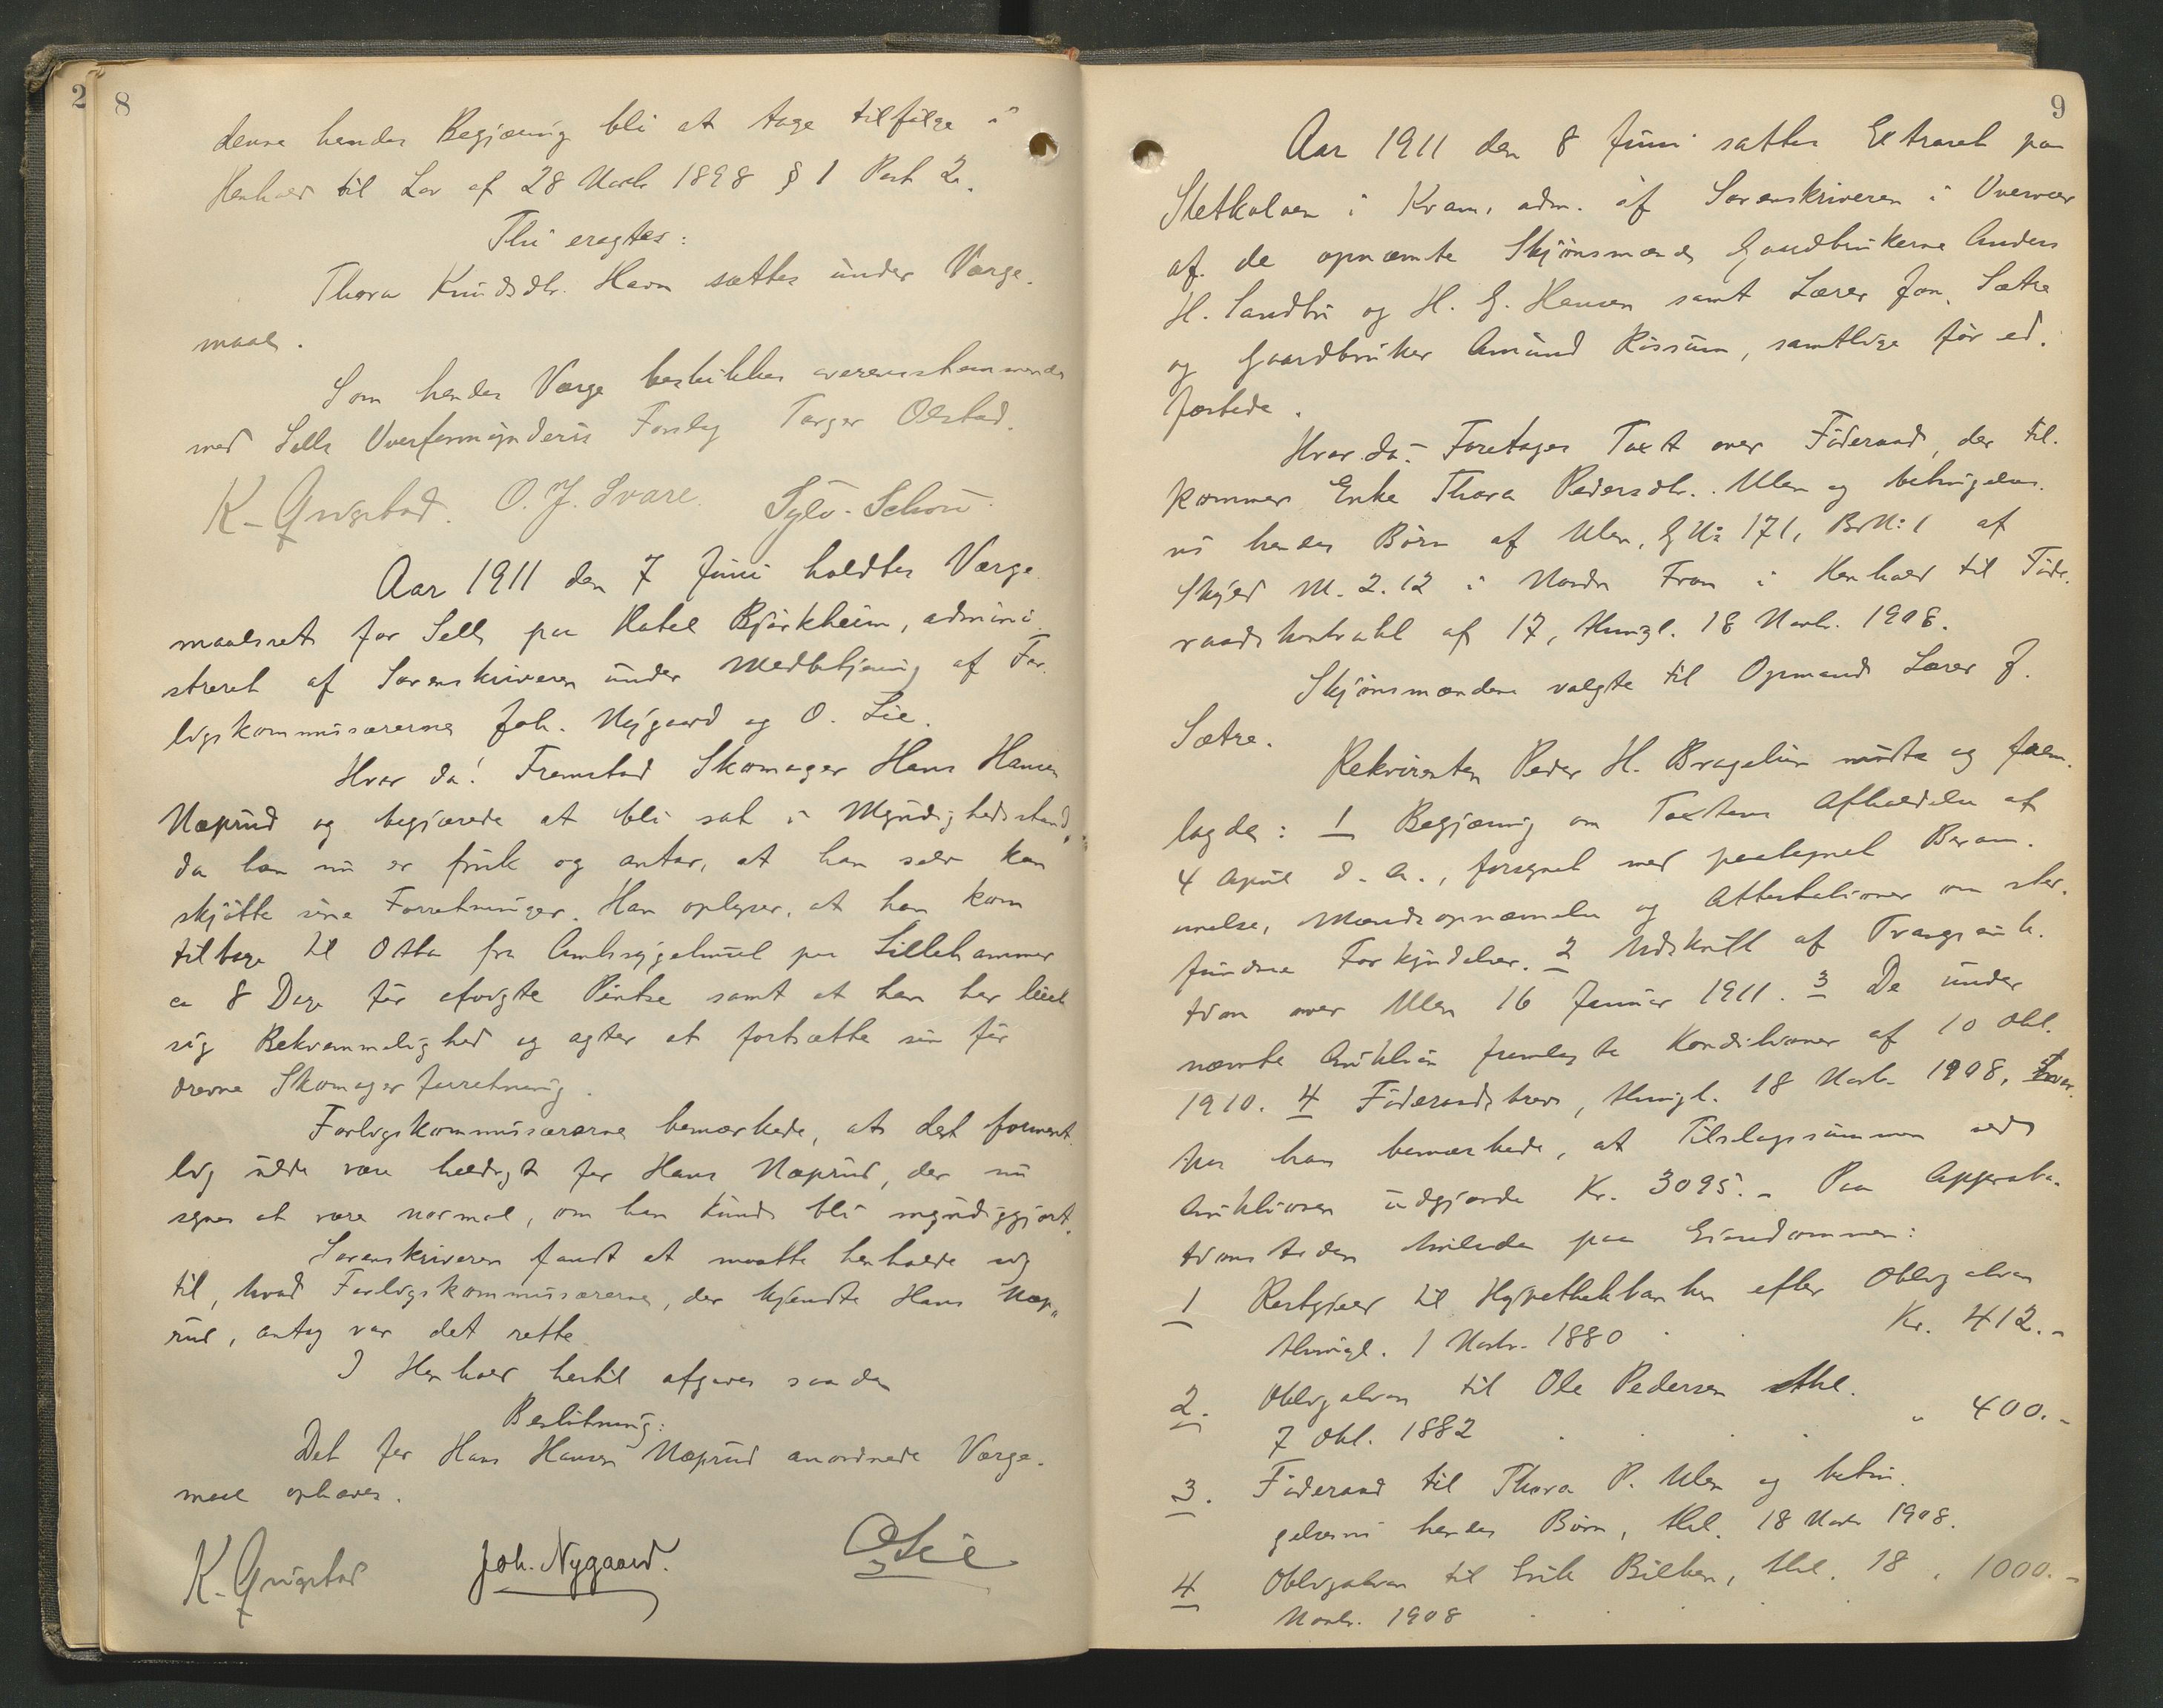 2
8
denne hendes Begjæring bli at tage tilfølge i
Henhold til Lov af 28 Novbr 1898 § 1 Post 2.
Thi eragtes:
Thora Knudsdtr. Havn sættes under Værge-
maal.
Som hendes Værge beskikkes overensstemmende
med Sells Overformynderis Forslag Torger Olstad.
K. O. J. Svare. Sylv. Schou.
Aar 1911 den 7 Juni holdtes Værge
maalsret for Sell paa Hotel Bjørkheim, admini-
streret af Sorenskriveren under Medbetjening af For-
ligskommissærerne Joh. Nygaard og O. Lie.
Hvor da: Fremstod Skomager Hans Hansen
Næprud og begjærede at bli sat i Myndighedsstand,
da han nu er frisk og antar, at han selv kan
skjøtte sine Forretninger. Han oplyser, at han kom
tilbage til Otta fra Amtssygehuset paa Lillehammer
ca 8 Dage før afvigte Pintse samt at han har leiet
sig Bekvemmelighed og agter at fortsætte sin før
drevne Skomagerforretning.
Forligskommissærerne bemærkede, at det forment-
lig vilde være heldigt for Hans Næprud, der nu
synes at være normal, om han kunde bli myndiggjort.
Sorenskriveren fandt at maatte henholde sig
til, hvad Forligskommissærerne, der kjendte Hans Næp„
rud, antog var det rette.
I Henhold hertil afgaves saadan
Beslutning:
Det for Hans Hansen Næprud anordnede Værge-
maal ophæves.
K. Joh. Nygaard. O Lie
9
Aar 1911 den 8 Juni sattes Extraret paa
Sletkolaen i Kvam, adm. af Sorenskriveren i Overvær
af de opnævnte Skjønsmænd Gaardbrukerne Anders
H. Sandbu og H. G. Hansen samt Lærer Jon. Sætre
og Gaardbruker Amund Rissum, samtlige før ed-
fæstede.
Hvor da: Foretages Taxt over Føderaad, der til-
kommer Enke Thora Pedersdtr. Ulen og betingelses-
vis hendes Børn af Ulen, G.No 171, BrNo: 1 af
Skyld M. 2.12 i Nordre Fron i Henhold til Føde-
raadskontrakt af 17, thingl. 18 Novbr. 1908.
Skjønsmændene valgte til Opmand Lærer J.
Sætre.
Rekvirenten Peder H. Bragelien mødte og frem-
lagde: 1 Begjæring om Taxtens Afholdelse af
4 April d. A., forsynet med paategnet Beram-
melse, Mændsopnævnelse og Attestationer om sted-
fundne Forkyndelser. 2 Udskrift af Tvangsauk-
tion over Ulen 16 Januar 1911. 3 De under
nævnte Auktion fremlagte Konditioner af 10 Okt.
1910. 4 Føderaadsbrev, thingl. 18 Novbr 1908,
han bemærkede, at Tilslagssummen ved
Auktionen udgjorde Kr. 3095.- Paa Approba-
tionstiden hvilede paa Eiendommen:
1 Restgjæld til Hypothekbanken efter Obligation
thingl. 1 Novbr. 1880 . . Kr. 412.-
2. Obligation til Ole Pedersen thl.
7 Okt. 1882 . . . „ 400.-
3. Føderaad til Thora P. Ulen og betin-
gelsesvis hendes Børn, thl. 18 Novbr 1908.
4 Obligation til Erik Bilben, thl. 18 „ 1000.-
Novbr. 1908 . . .